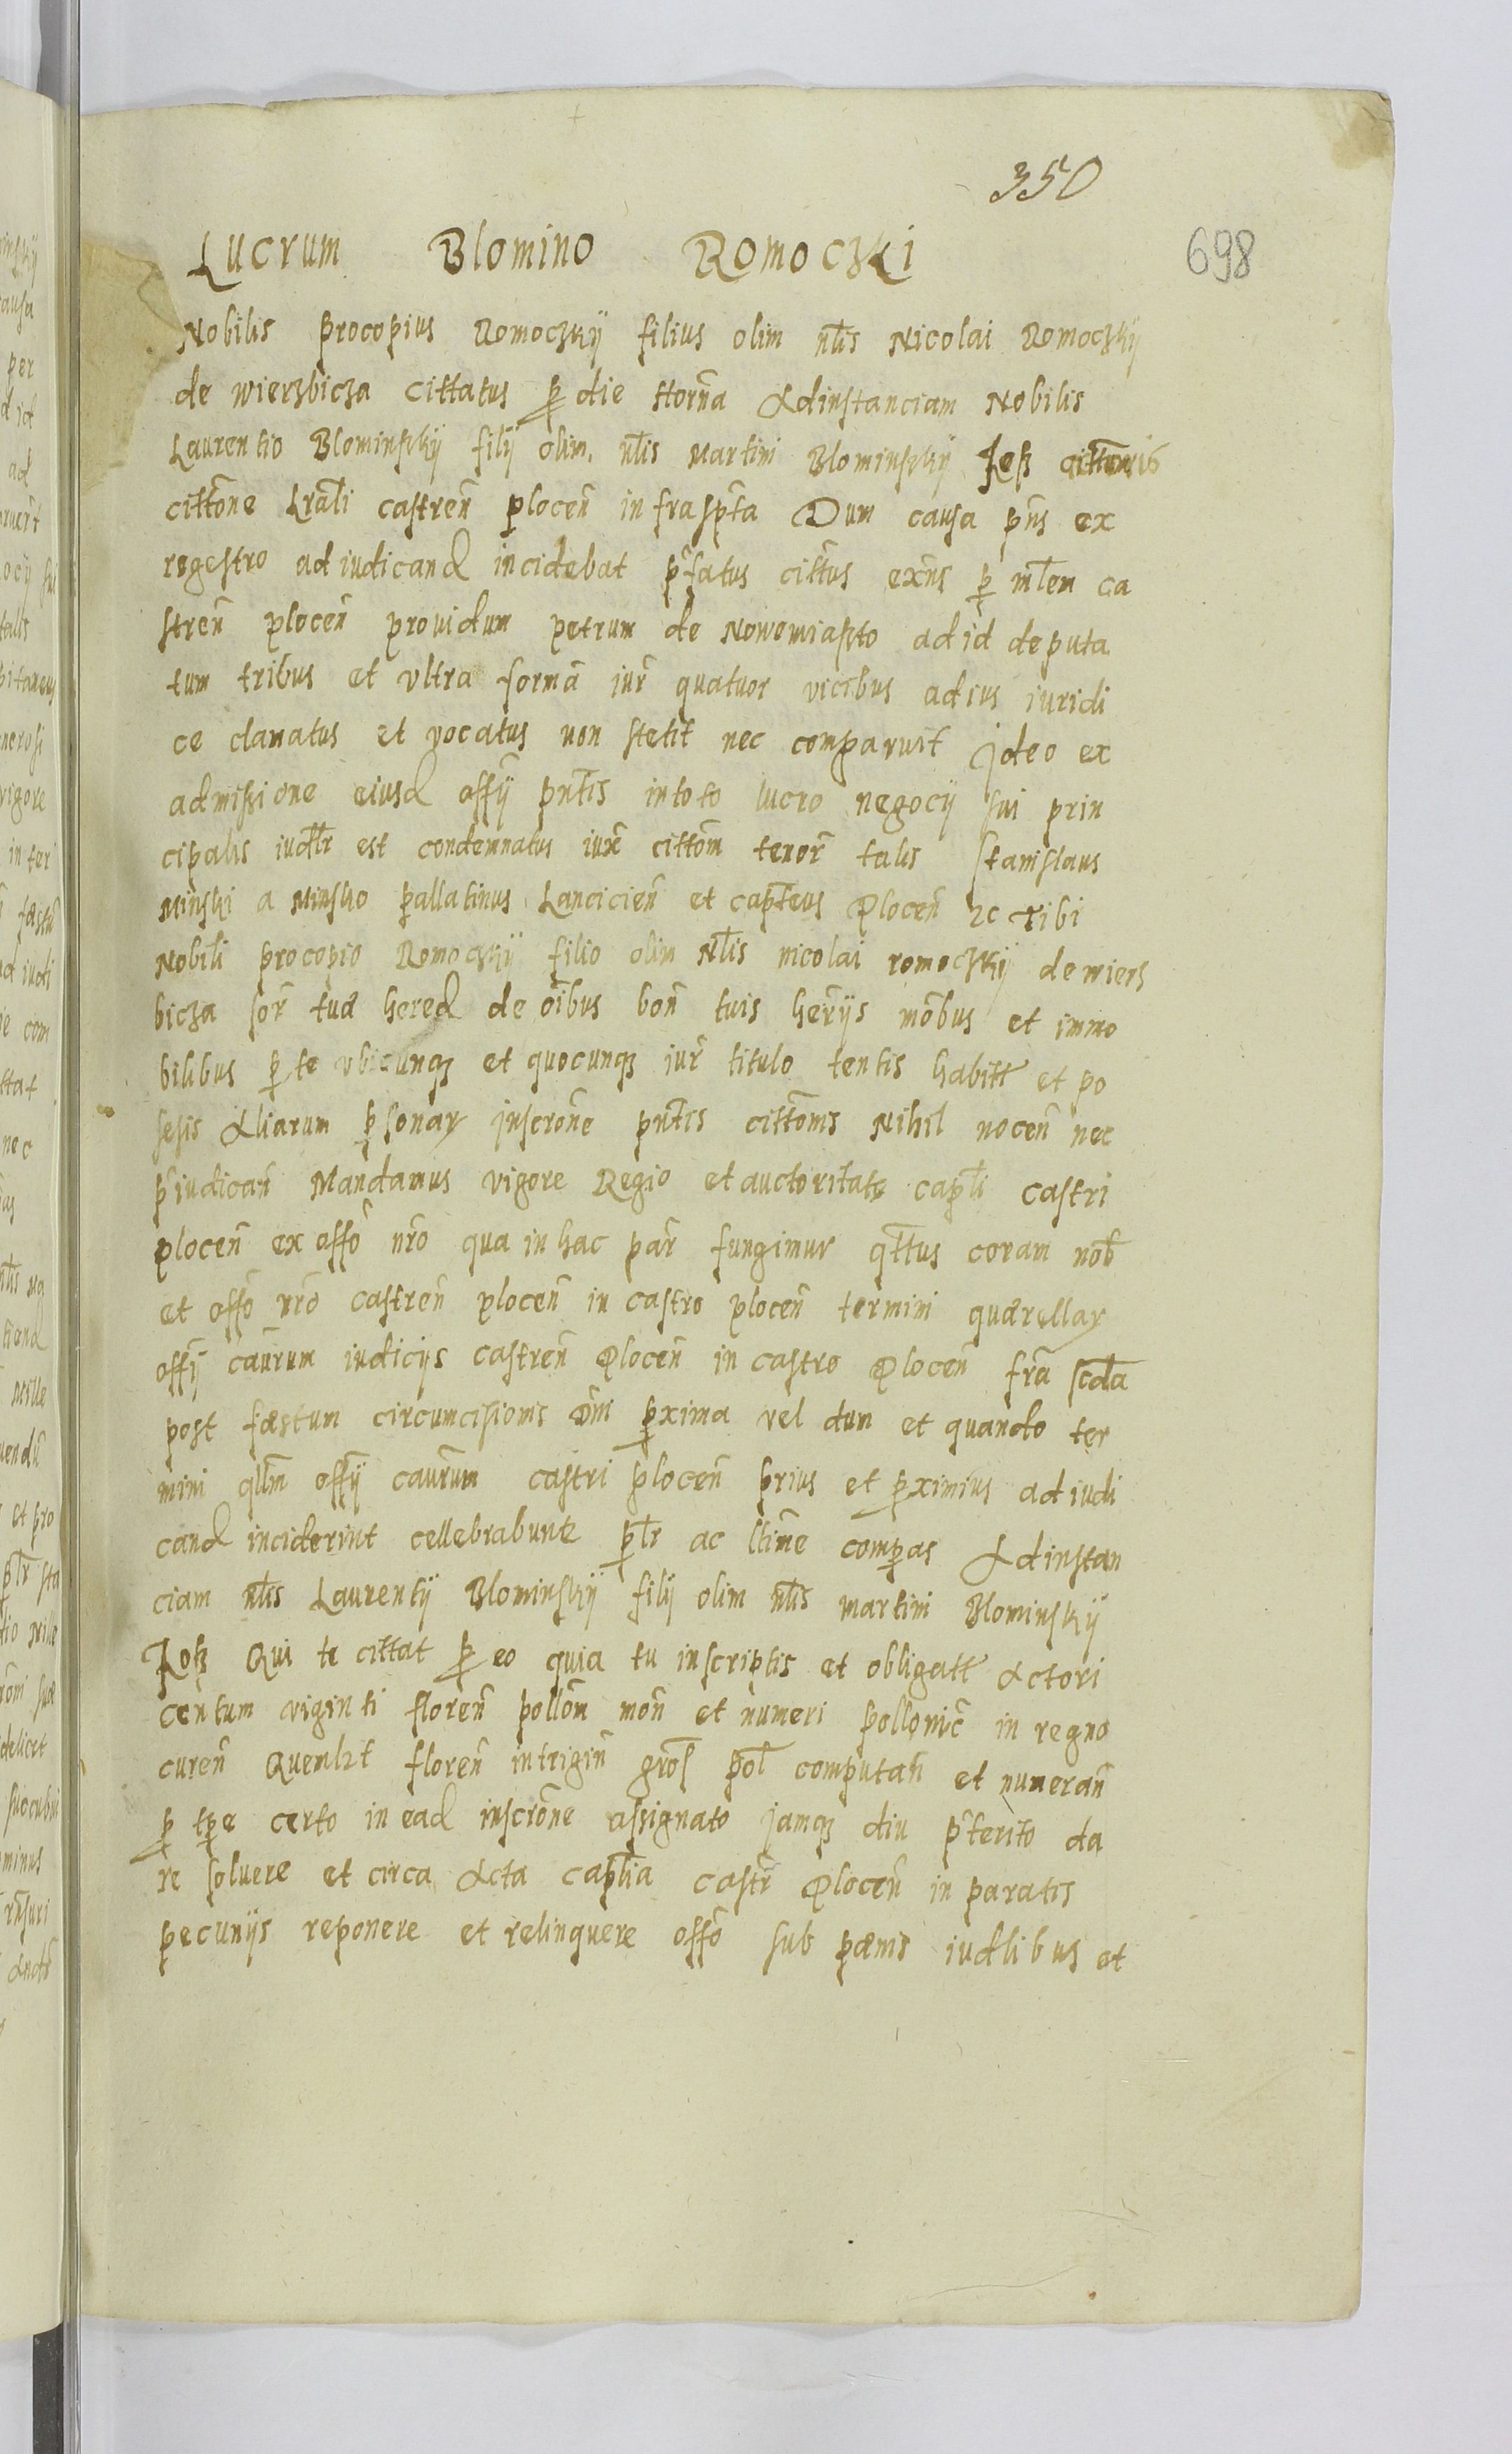 350
698
Lucrum Blomino Romoczki
Nobilis Procopius Romoczkÿ filius olim nlis Nicolai Romoczkÿ
de wierzbicza cittatus p die horna Adinstanciam Nobilis
Laurentio Blominskÿ filÿ olim nlis Martini Blominskÿ
cittone Lrali castren plocen infraspta Dum causa pns ex
regestro adiudicand incidebat pfatus cittus exns p mlem ca
stren plocen prouidum petrum de Nowomiasto ad id deputa
tum tribus et vltra forma iur quatuor vicibus ad ius iuridi
ce clamatus et vocatus non stetit nec comparuit Ideo ex
admissione eiusd offÿ pntis intoto lucro negocÿ sui prin
cipalis iudlr est condemnatus iux cittom tenor talis Stanislaus
Minski a Minsko pallatinus Lancicien et capteus Plocen zc Tibi
Nobili procopio Romoczkÿ filio olim Nlis nicolai romoczkÿ de wierz
bicza for tua hered de oibus bon tuis herÿs mobus et immo
bilibus p te vbicunqz et quocunqz iur titulo tentis habitt et po
sesis Aliarum psonar Inscrone pntis cittoms Nihil nocen nec
piudican Mandamus vigore Regio et auctoritate capli castri
plocen ex offo nro qua in hac par fungimur qttus coram nob
et offo nro castren plocen in castro plocen termini quærellar
offÿ caurum iudicÿs castren Plocen in castro Plocen fra scda
post fæstum circumcisionis Dni pxima vel dum et quando ter
mini qllm offÿ caurum castri plocen prius et pximius ad iudi
cand inciderint cellebrabunt plr ac ltime compas Adinstan
ciam nlis Laurentÿ Blominskÿ filÿ olim nlis martini Blominskÿ
Qui te cittat p eo quia tu inscriptis et obligatt Actori
centum viginti floren pollom mon et numeri pollonic in regno
curen Quemlzt floren intrigin gros pol computan et numeran
p tpe certo in ead inscrone assignato Jamqz diu pterito da
re soluere et circa Acta caplia castr Plocen in paratis
pecunÿs reponere et relinquere offo sub pænis iudlibus et